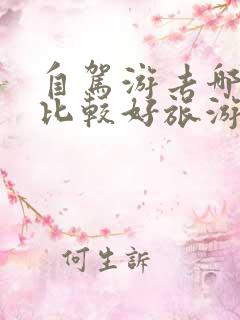 自駕游去哪
比較好旅游
何生訴